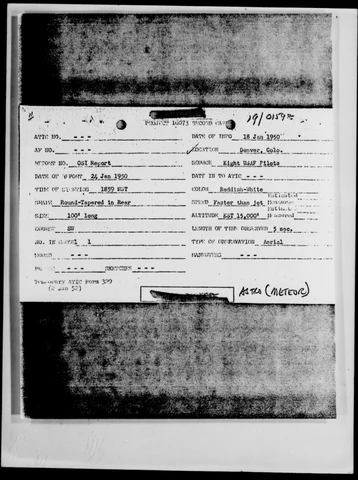 PROJECT 10073 RECORD CARD
19/0159Z
ATIC NO. - - - DATE OF INFO 18 Jan 1950
AF NO. - - - LOCATION Denver, Colo.
REPORT NO. OSI Report SOURCE Eight USAF Pilots
DATE OF REPORT 24 Jan 1950 DATE IN TO ATIC - - -
TIME OF SIGHTING 1859 MST COLOR Reddish-White
SHAPE Round-Tapered in Rear SPEED Faster than jet
SIZE 100' long ALTITUDE EST 15,000'
COURSE SW LENGTH OF TIME OBSERVED 5 sec.
NO. IN GROUP 1 TYPE OF OBSERVATION Aerial
SOUND - - - MANEUVERS - - -
PHOTOS - - - SKETCHES - - -
Temporary ATIC Form 329
(2 Jan 52)
ASTRO (METEOR)